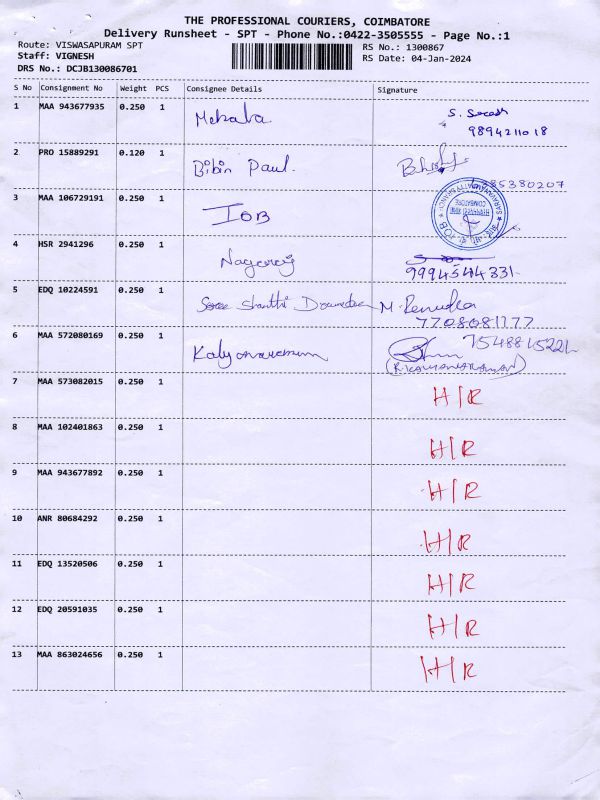 THE PROFESSIONAL COURIERS, COIMBATORE
Delivery Runsheet - SPT - Phone No.:0422-3505555 - Page No.:1
Route: VISWASAPURAM SPT
RS No.: 1300867
Staff: VIGNESH
RS Date: 04-Jan-2024
DRS No.: DCJB130086701
S No Consignment No Weight PCS Consignee Details Signature
1 MAA 943677935 0.250 1 Mekala S. Suresh
9894211018
2 PRO 15889291 0.120 1 Bibin Paul.
3 MAA 106729191 0.250 1 IOB
4 HSR 2941296 0.250 1 Nagaraj
9994544331
5 EDQ 10224591 0.250 1 Shanthi M. Renuka
7708081177
6 MAA 572080169 0.250 1 Kalyanaraman
(R.KALYANARAMAN)
7 MAA 573082015 0.250 1 H/R
8 MAA 102401863 0.250 1 H/R
9 MAA 943677892 0.250 1 H/R
10 ANR 80684292 0.250 1 H/R
11 EDQ 13520506 0.250 1 H/R
12 EDQ 20591035 0.250 1 H/R
13 MAA 863024656 0.250 1 H/R